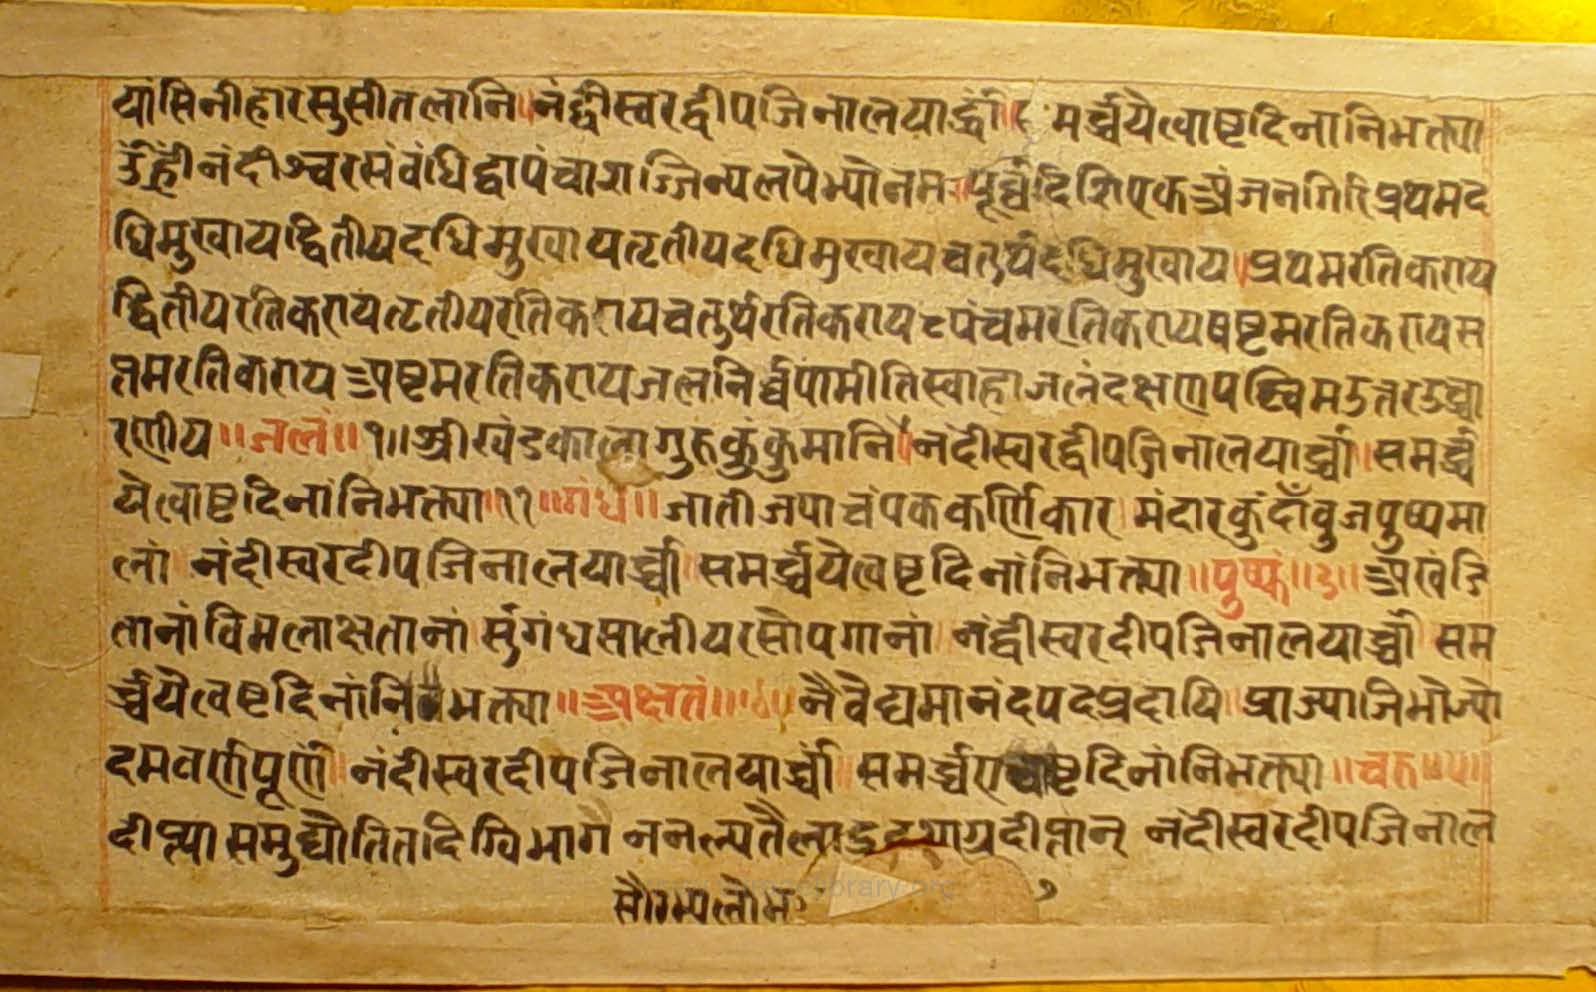 यांसिनीहारसुसीतलानि।नंद्वीस्वरद्वीपजिनालयार्द्धां॥ मर्च्चयेत्वाष्टदिनानिभक्त्या
उंह्रींनंदीश्वरसंवंधिद्वापंचाशज्जिन्यलपेभ्योनमः।पूर्व्वदिशिएकअंजनगिरिप्रथमद
धिमुखायद्वितीयदधिमुखायतृतीयदधिमुखायचतुर्थदधिमुखाय॥प्रथमरतिकराय
द्वितीयरतिकरायतृतीयरतिकरायचतुर्थरतिकरायपंचमरतिकरायषष्टमरतिकरायस
प्तमरतिकरायअष्टमरतिकरायजलनिर्व्वपामीतिस्वाहाजलंदक्षणपश्चिमउत्तरउच्चा
रणीय॥जलं॥१॥श्रीखंडकालागुरुकुंकुमानि।नंदीस्वरद्वीपजिनालयार्च्चा।समर्च्च
येत्वाष्टदिनांनिभक्त्या॥२॥गंधं॥जातीजपाचंपककर्णिकार।मंदारकुंदाँवुजपुष्पमा
लां।नंदीस्वरदीपजिनालयार्च्चा।समर्च्चयेत्वेष्टदिनांनिभक्त्या॥पुष्पं॥३॥अखंडि
तानांविमलाक्षतानां।सुगंधसालीयरसोपगानां।नंद्वीस्वरदीपजिनालयार्च्चां।सम
र्च्चयेत्वेष्टदिनांनिभक्त्या॥अक्षतं॥४॥नैवेद्यमानंदपदप्रदायि।प्राज्याजिभोज्यो
दमवर्णपूर्णं।नंदीस्वरदीपजिनालयार्च्चां।समर्च्चएत्वाष्टदिनांनिभक्त्या॥चरु॥५॥
दीप्त्यासमुद्योतितदिग्विभागे ननल्पतैलाद्रदशाग्रदीप्तान् नंदीस्वरदीपजिनाल